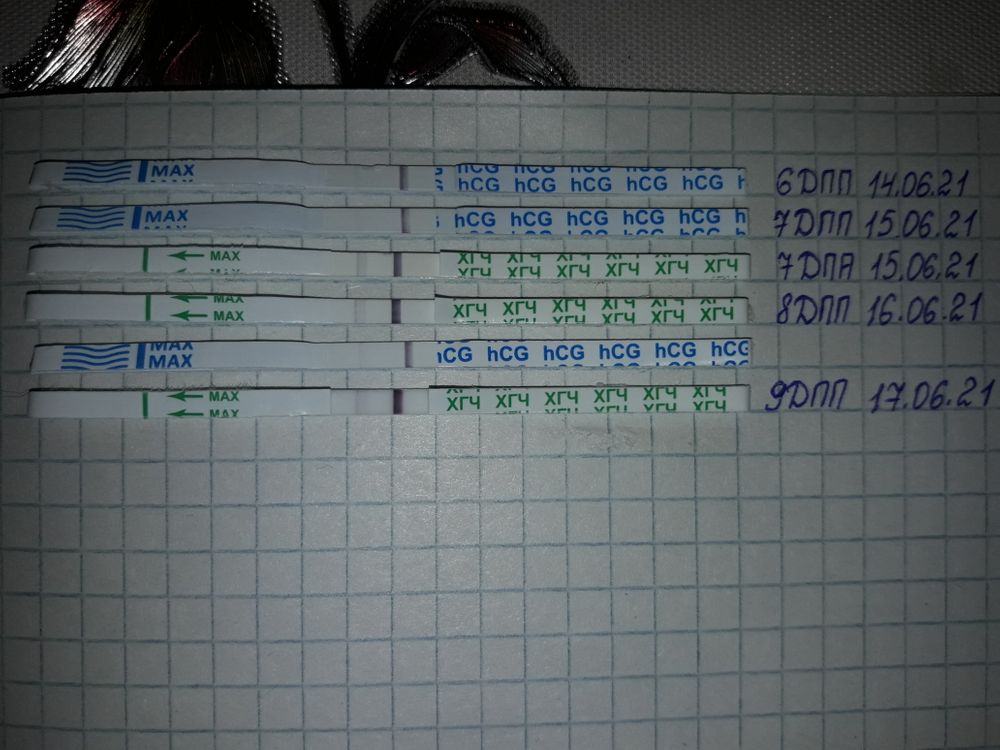 MAX hCG hCG hCG hCG hCG
MAX hCG hCG hCG hCG hCG 6ДПП 14.06.21
MAX hCG hCG hCG hCG hCG 7ДПП 15.06.21
MAX hCG hCG hCG hCG hCG
MAX ХГЧ ХГЧ ХГЧ ХГЧ ХГЧ ХГЧ
MAX ХГЧ ХГЧ ХГЧ ХГЧ ХГЧ ХГЧ 7ДПП 15.06.21
MAX ХГЧ ХГЧ ХГЧ ХГЧ ХГЧ ХГЧ
MAX ХГЧ ХГЧ ХГЧ ХГЧ ХГЧ ХГЧ 8ДПП 16.06.21
MAX
MAX hCG hCG hCG hCG hCG hCG
MAX ХГЧ ХГЧ ХГЧ ХГЧ ХГЧ ХГЧ
MAX ХГЧ ХГЧ ХГЧ ХГЧ ХГЧ ХГЧ 9ДПП 17.06.21